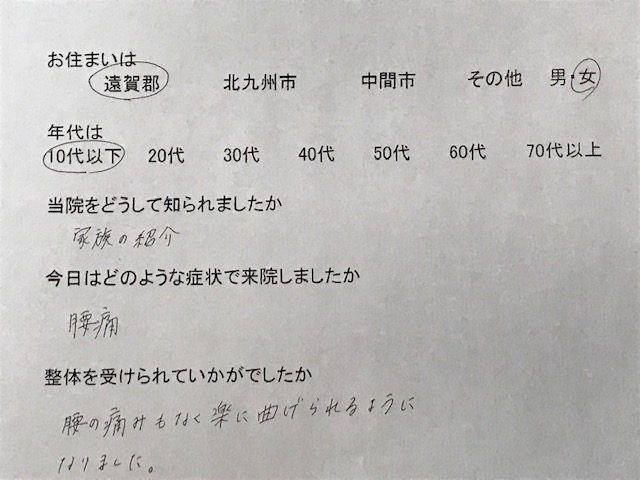 お住まいは
遠賀郡 北九州市 中間市 その他 男・女
年代は
10代以下 20代 30代 40代 50代 60代 70代以上
当院をどうして知られましたか
家族の紹介
今日はどのような症状で来院しましたか
腰痛
整体を受けられていかがでしたか
腰の痛みもなく楽に曲げられるように
なりました。